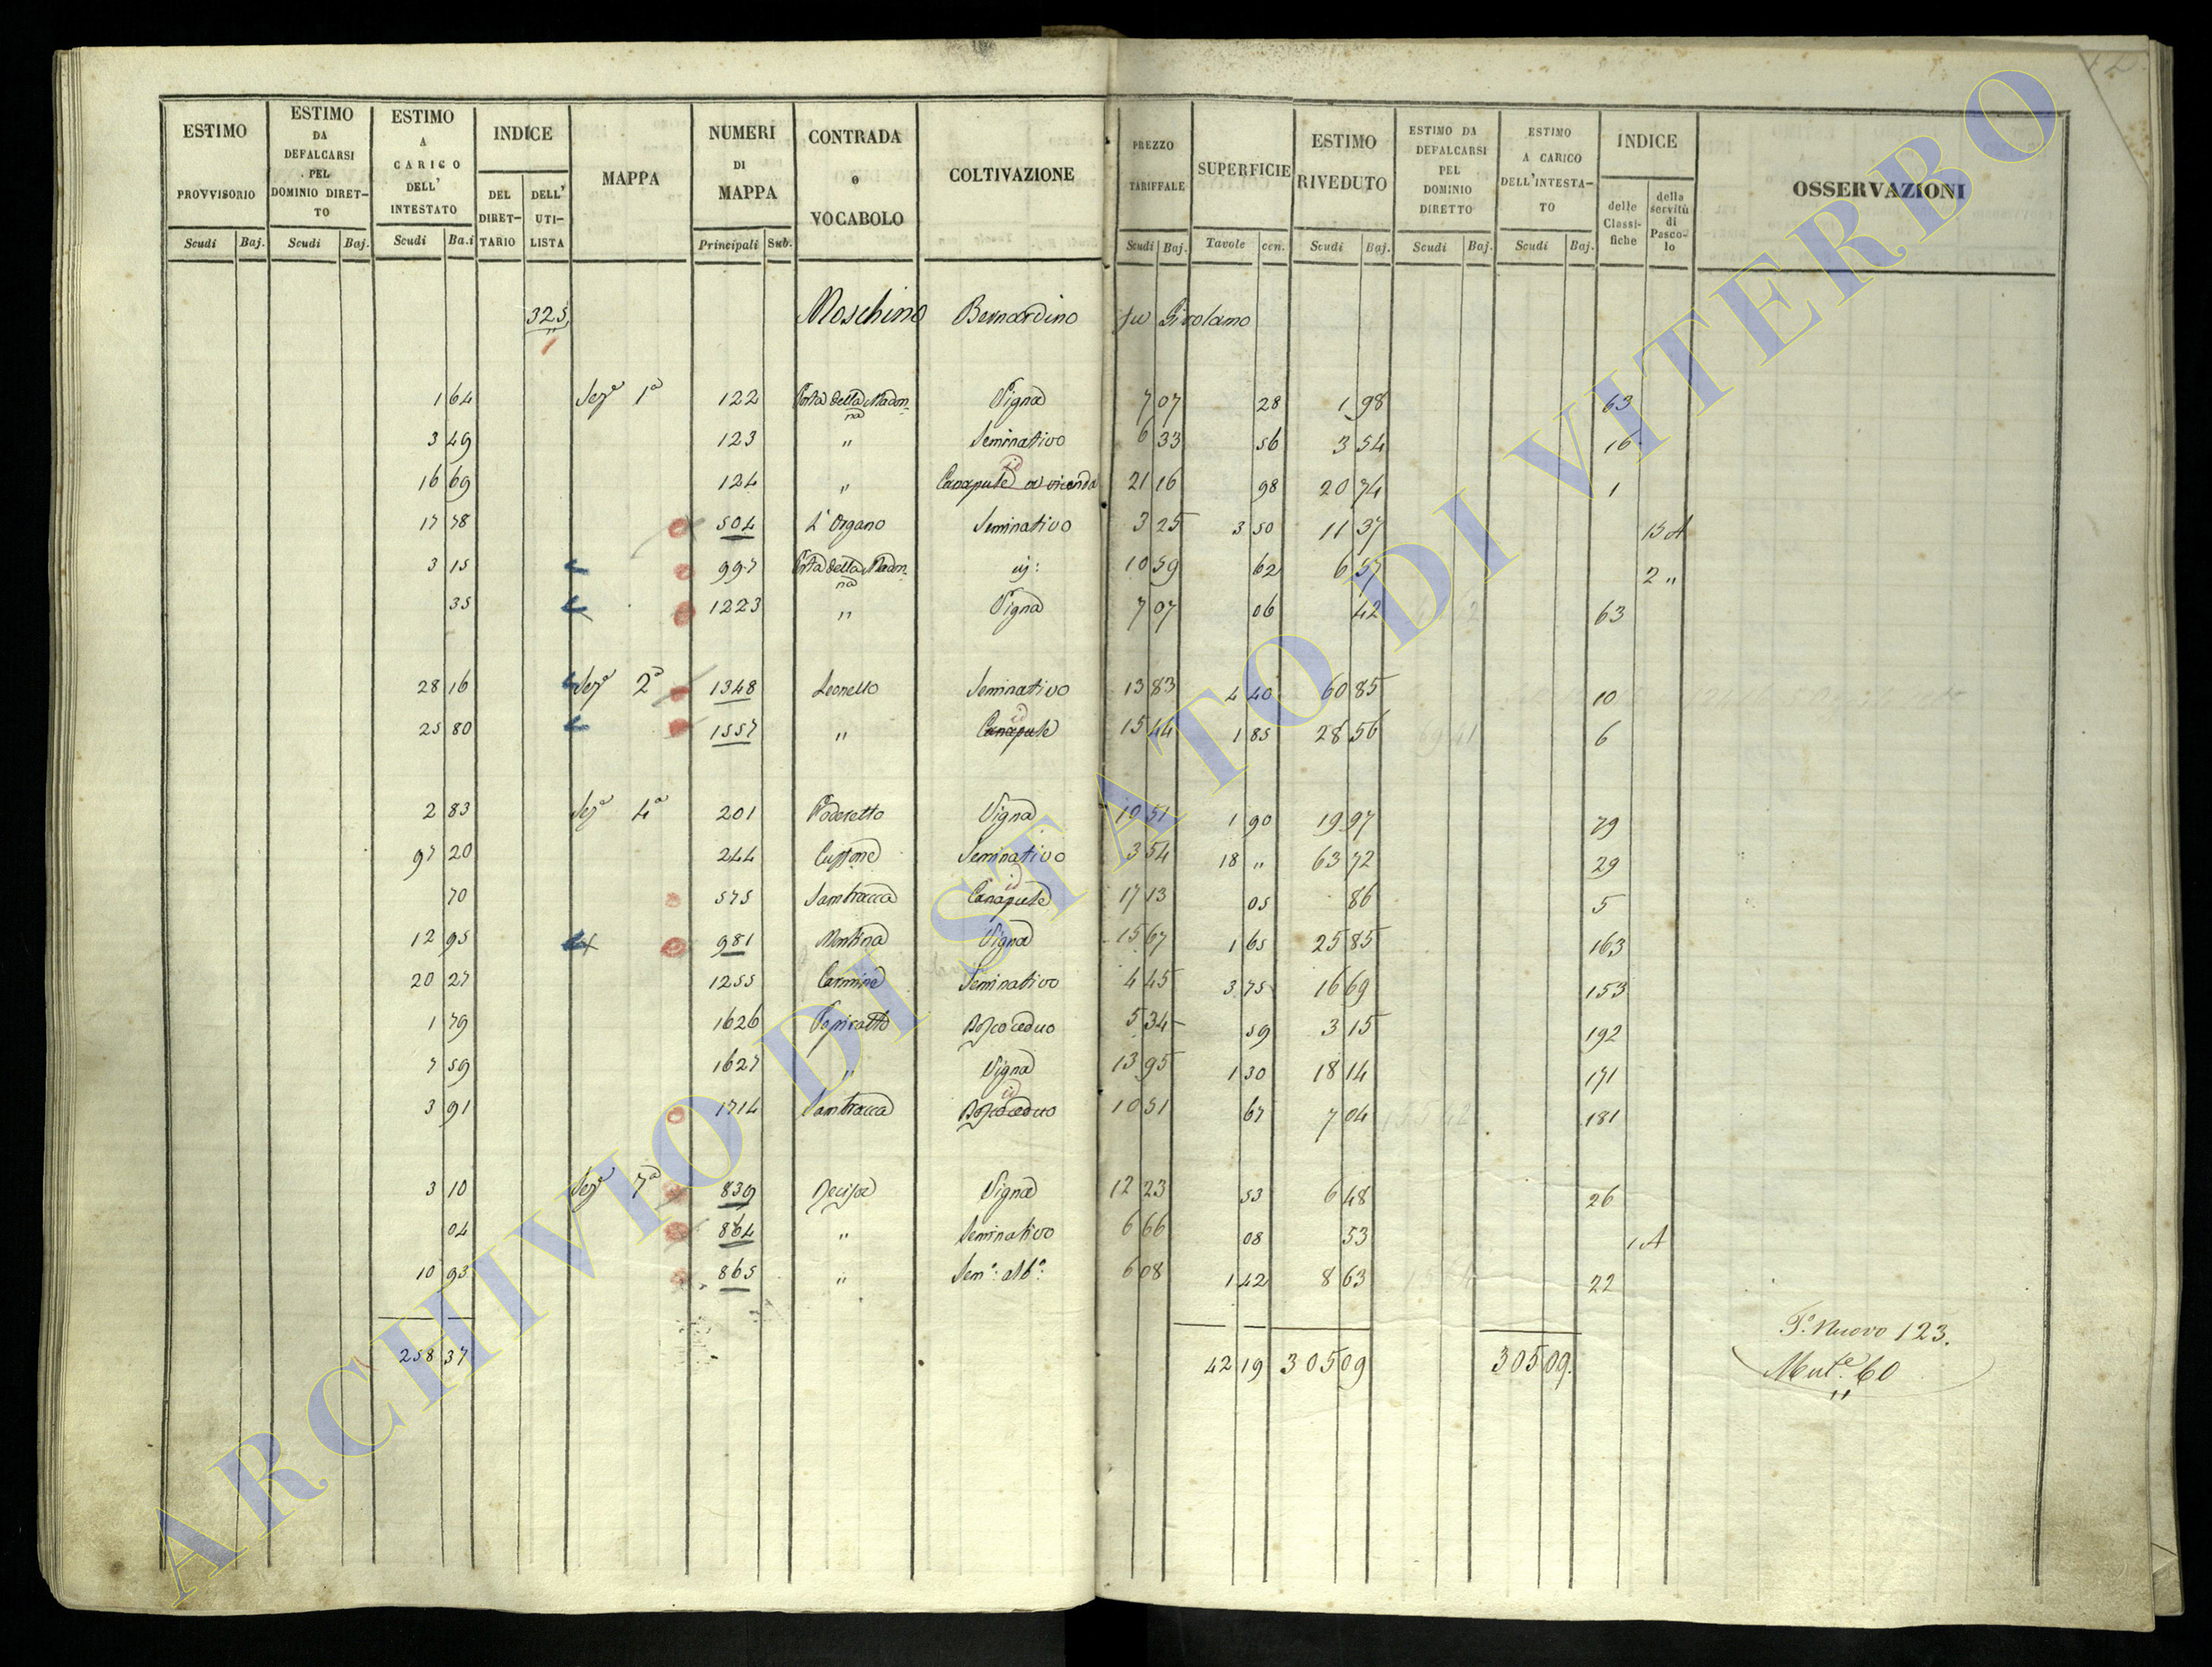 ESTIMO PROVVISORIO Scudi Baj.
ESTIMO DA DEFALCARSI PEL DOMINIO DIRET-TO Scudi Baj.
ESTIMO A CARICO DELL' INTESTATO Scudi Ba.i
INDICE DEL DIRET-TARIO DELL' UTI-LISTA
MAPPA
NUMERI DI MAPPA Principali Sub.
CONTRADA o VOCABOLO
COLTIVAZIONE
PREZZO TARIFFALE Scudi Baj.
SUPERFICIE Tavole cen.
ESTIMO RIVEDUTO Scudi Baj.
ESTIMO DA DEFALCARSI PEL DOMINIO DIRETTO Scudi Baj.
ESTIMO A CARICO DELL'INTESTA-TO Scudi Baj.
INDICE delle Classi-fiche della servitù di Pasco-lo
OSSERVAZIONI
325 Moschino Bernardino fu Girolamo
1 64 Sezne 1a 122 Porta della Madonna Vigna 7 07 28 1 98 63
3 49 123 " Seminativo 6 33 56 3 54 16
16 69 124 " Canapule a vicenda 21 16 98 20 74 1
17 78 504 L'Organo Seminativo 3 25 3 50 11 37 15 A
3 15 997 Porta della Madonna 10 59 62 6 57 2 "
35 1223 " Vigna 7 07 06 42 63
28 16 Sezne 2a 1348 Leonello Seminativo 13 83 4 40 60 85 10
25 80 1557 " Canapule 15 44 1 85 28 56 6
2 83 Sezne 4a 201 Poderetto Vigna 10 51 1 90 19 97 79
97 20 244 Seminativo 3 54 18 " 63 72 29
70 575 Sambracca Canapule 17 13 05 86 5
12 95 981 Vigna 15 67 1 65 25 85 163
20 27 1255 Carmine Seminativo 4 45 3 75 16 69 153
1 79 1626 Bosco ceduo 5 34 59 3 15 192
7 59 1627 " Vigna 13 95 1 30 18 14 171
3 91 1714 Sambracca Bosco ceduo 10 51 67 7 04 181
3 10 Sezne 7a 839 Vigna 12 23 53 6 48 26
04 864 " Seminativo 6 66 08 53 1 A
10 93 865 " Semo: albo: 6 08 1 42 8 63 22
258 37 42 19 305 09 305 09.
Po. Nuovo 123.
Mut.e 60
ARCHIVIO DI STATO DI VITERBO